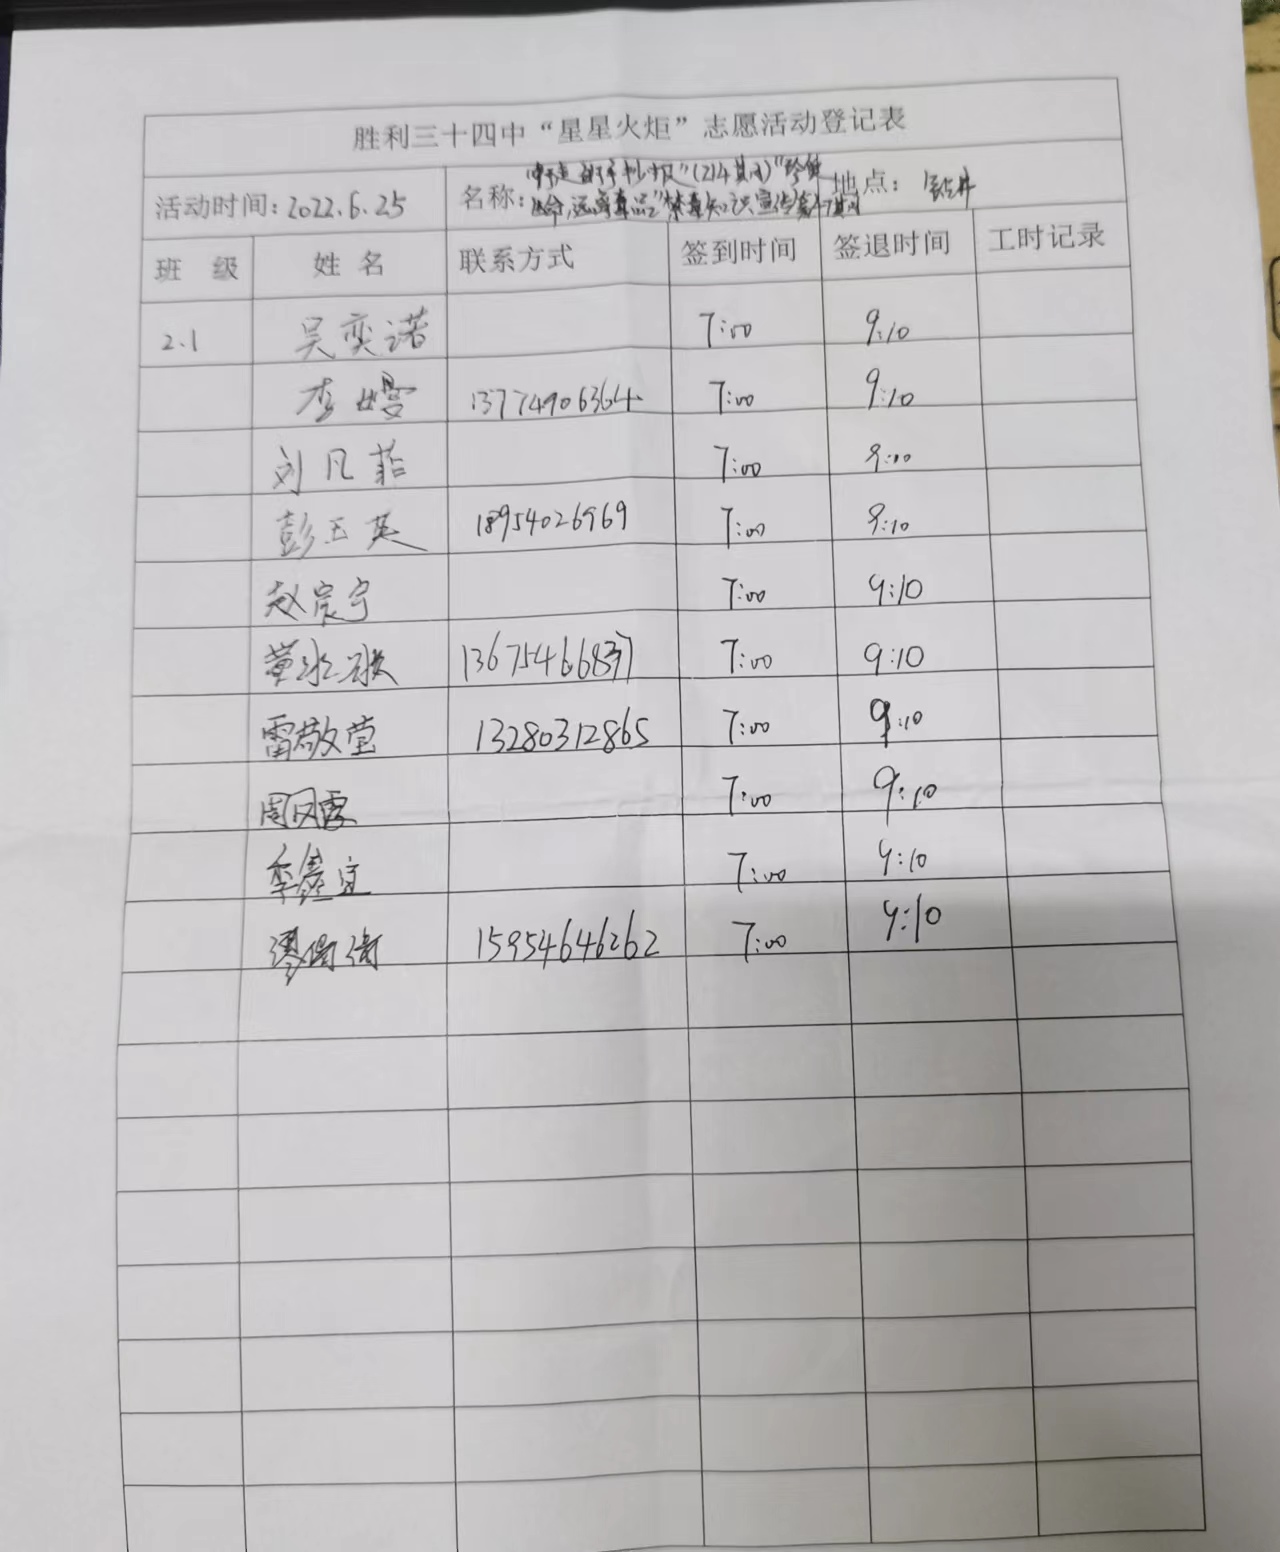 胜利三十四中“星星火炬”志愿活动登记表
活动时间：2022.6.25 名称： 手抄报”(214期)“珍爱 地点：钻井
生命，远离毒品”禁毒知识宣传
班 级 姓 名 联系方式 签到时间 签退时间 工时记录
2.1 吴奕诺 7:00 9:10
李 13774906364 7:00 9:10
刘凡菲 7:00 9:10
彭玉英 18954026969 7:00 9:10
赵宸宇 7:00 9:10
董冰 7:00 9:10
雷敬莹 13280312865 7:00 9:10
周风露 7:00 9:10
季鑫宜 7:00 9:10
15954646262 7:00 9:10